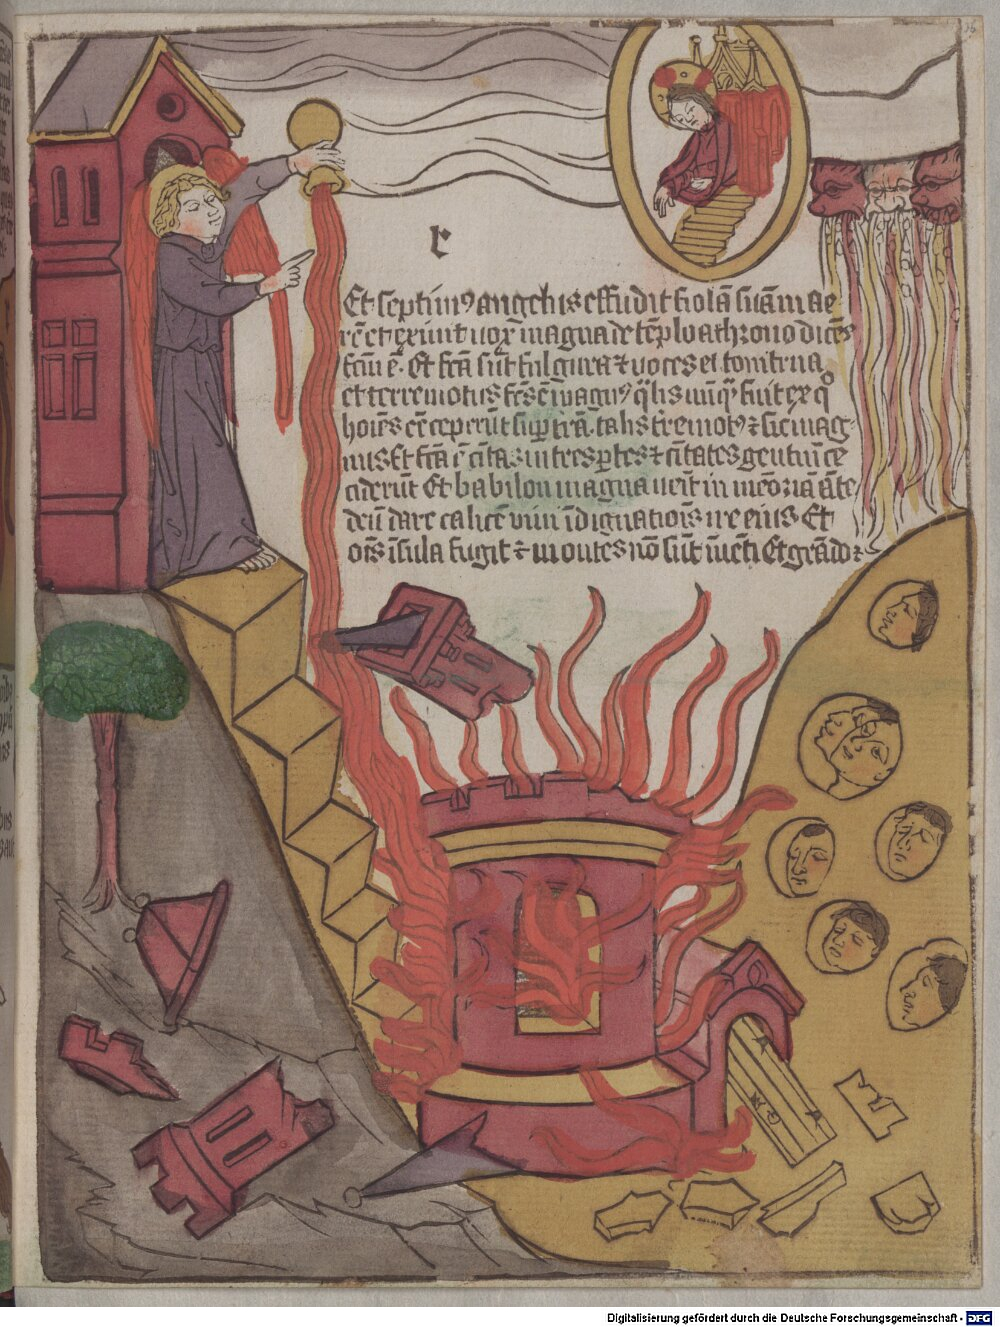 r
Et septimꝰ angelus effudit fiolā suā in ae
rē et exivit vox magna de tēplo a throno dicēs
fcm̄ ē. Et fca sūt fulgura ⁊ voces et tonitrua
et terremotus fcs ē magnꝰ qͣlis nūqͣ fuit ex qͦ
hoīes cēceperūt supͬ trā. talis t̄remotꝰ ⁊ sic mag
nus Et fca ē cītas in tres ptes ⁊ cītates gentiū ce
ciderūt Et babilon magna venit in mēoriā āte
deū dare calicē vini īdignatiois ire eius Et
oīs īsula fugit ⁊ montes nō sūt īvēti Et grādo ⁊
Digitalisierung gefördert durch die Deutsche Forschungsgemeinschaft - DFG